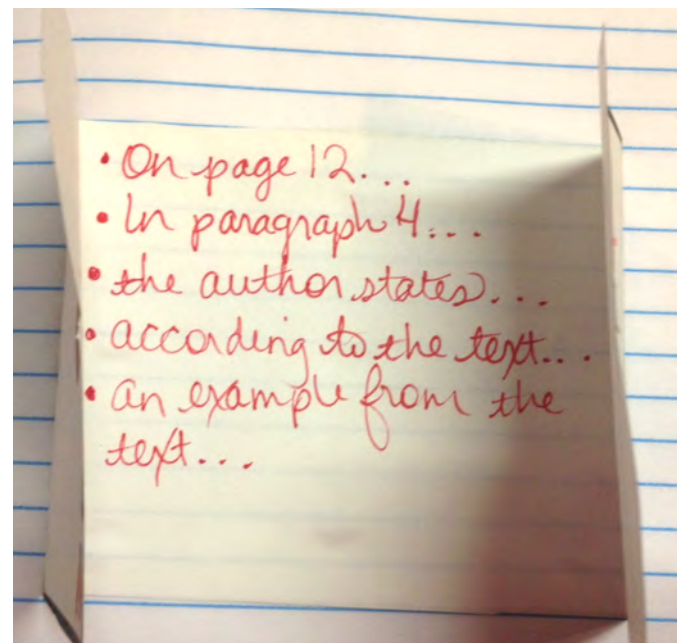 • On page 12...
• In paragraph 4...
• the author states...
• according to the text...
• an example from the
text...